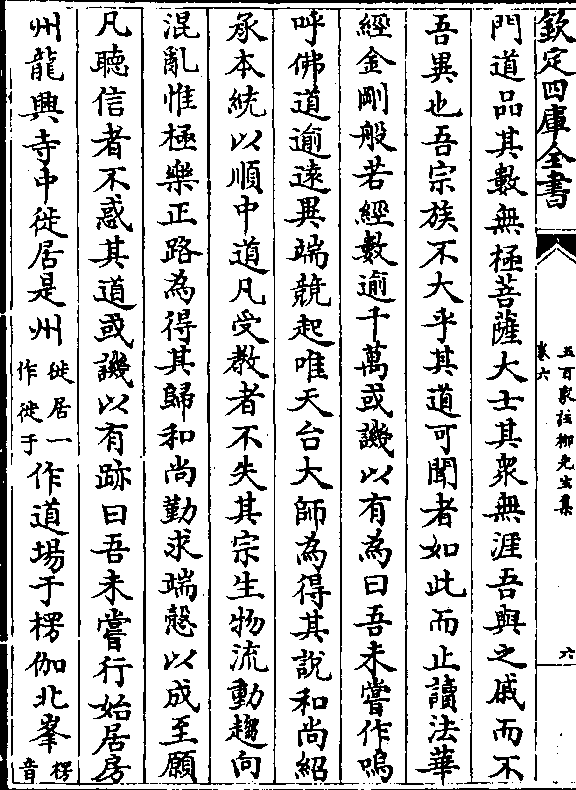 欽定四庫全書
五百家註柳先生集
卷六
六
門道品其數無極菩薩大士其衆無涯吾與之戚而不
吾異也吾宗族不大乎其道可聞者如此而止讀法華
經金剛般若經數逾千萬或譏以有為曰吾未嘗作嗚
呼佛道逾遠異端競起唯天台大師為得其說和尚紹
承本統以順中道凡受教者不失其宗生物流動趨向
混亂惟極樂正路為得其歸和尚勤求端慤以成至願
凡聽信者不惑其道或譏以有跡曰吾未嘗行始居房
州龍興寺中徙居是州徙居一作徙于作道場于楞伽北峯楞音